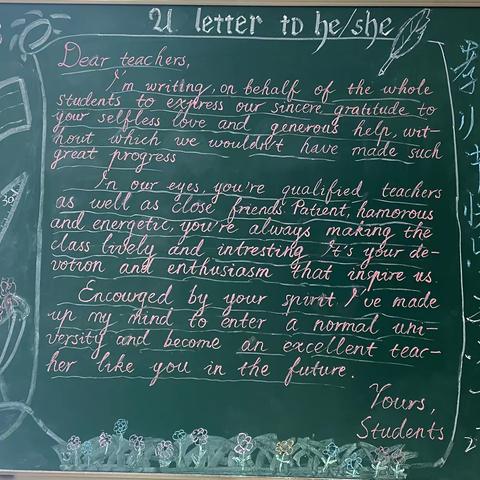 A letter to he/she
Dear teachers,
I'm writing, on behalf of the whole
students to express our sincere gratitude to
your selfless love and generous help, wit-
hout which we wouldn't have made such
great progress
In our eyes, you're qualified teachers
as well as close friends Patient, hamorous
and energetic, you're always making the
class lively and intresting It's your de-
votion and enthusiasm that inspire us.
Encourged by your spirit I've made
up my mind to enter a normal uni-
versity and become an excellent teac-
her like you in the future.
Yours,
Students